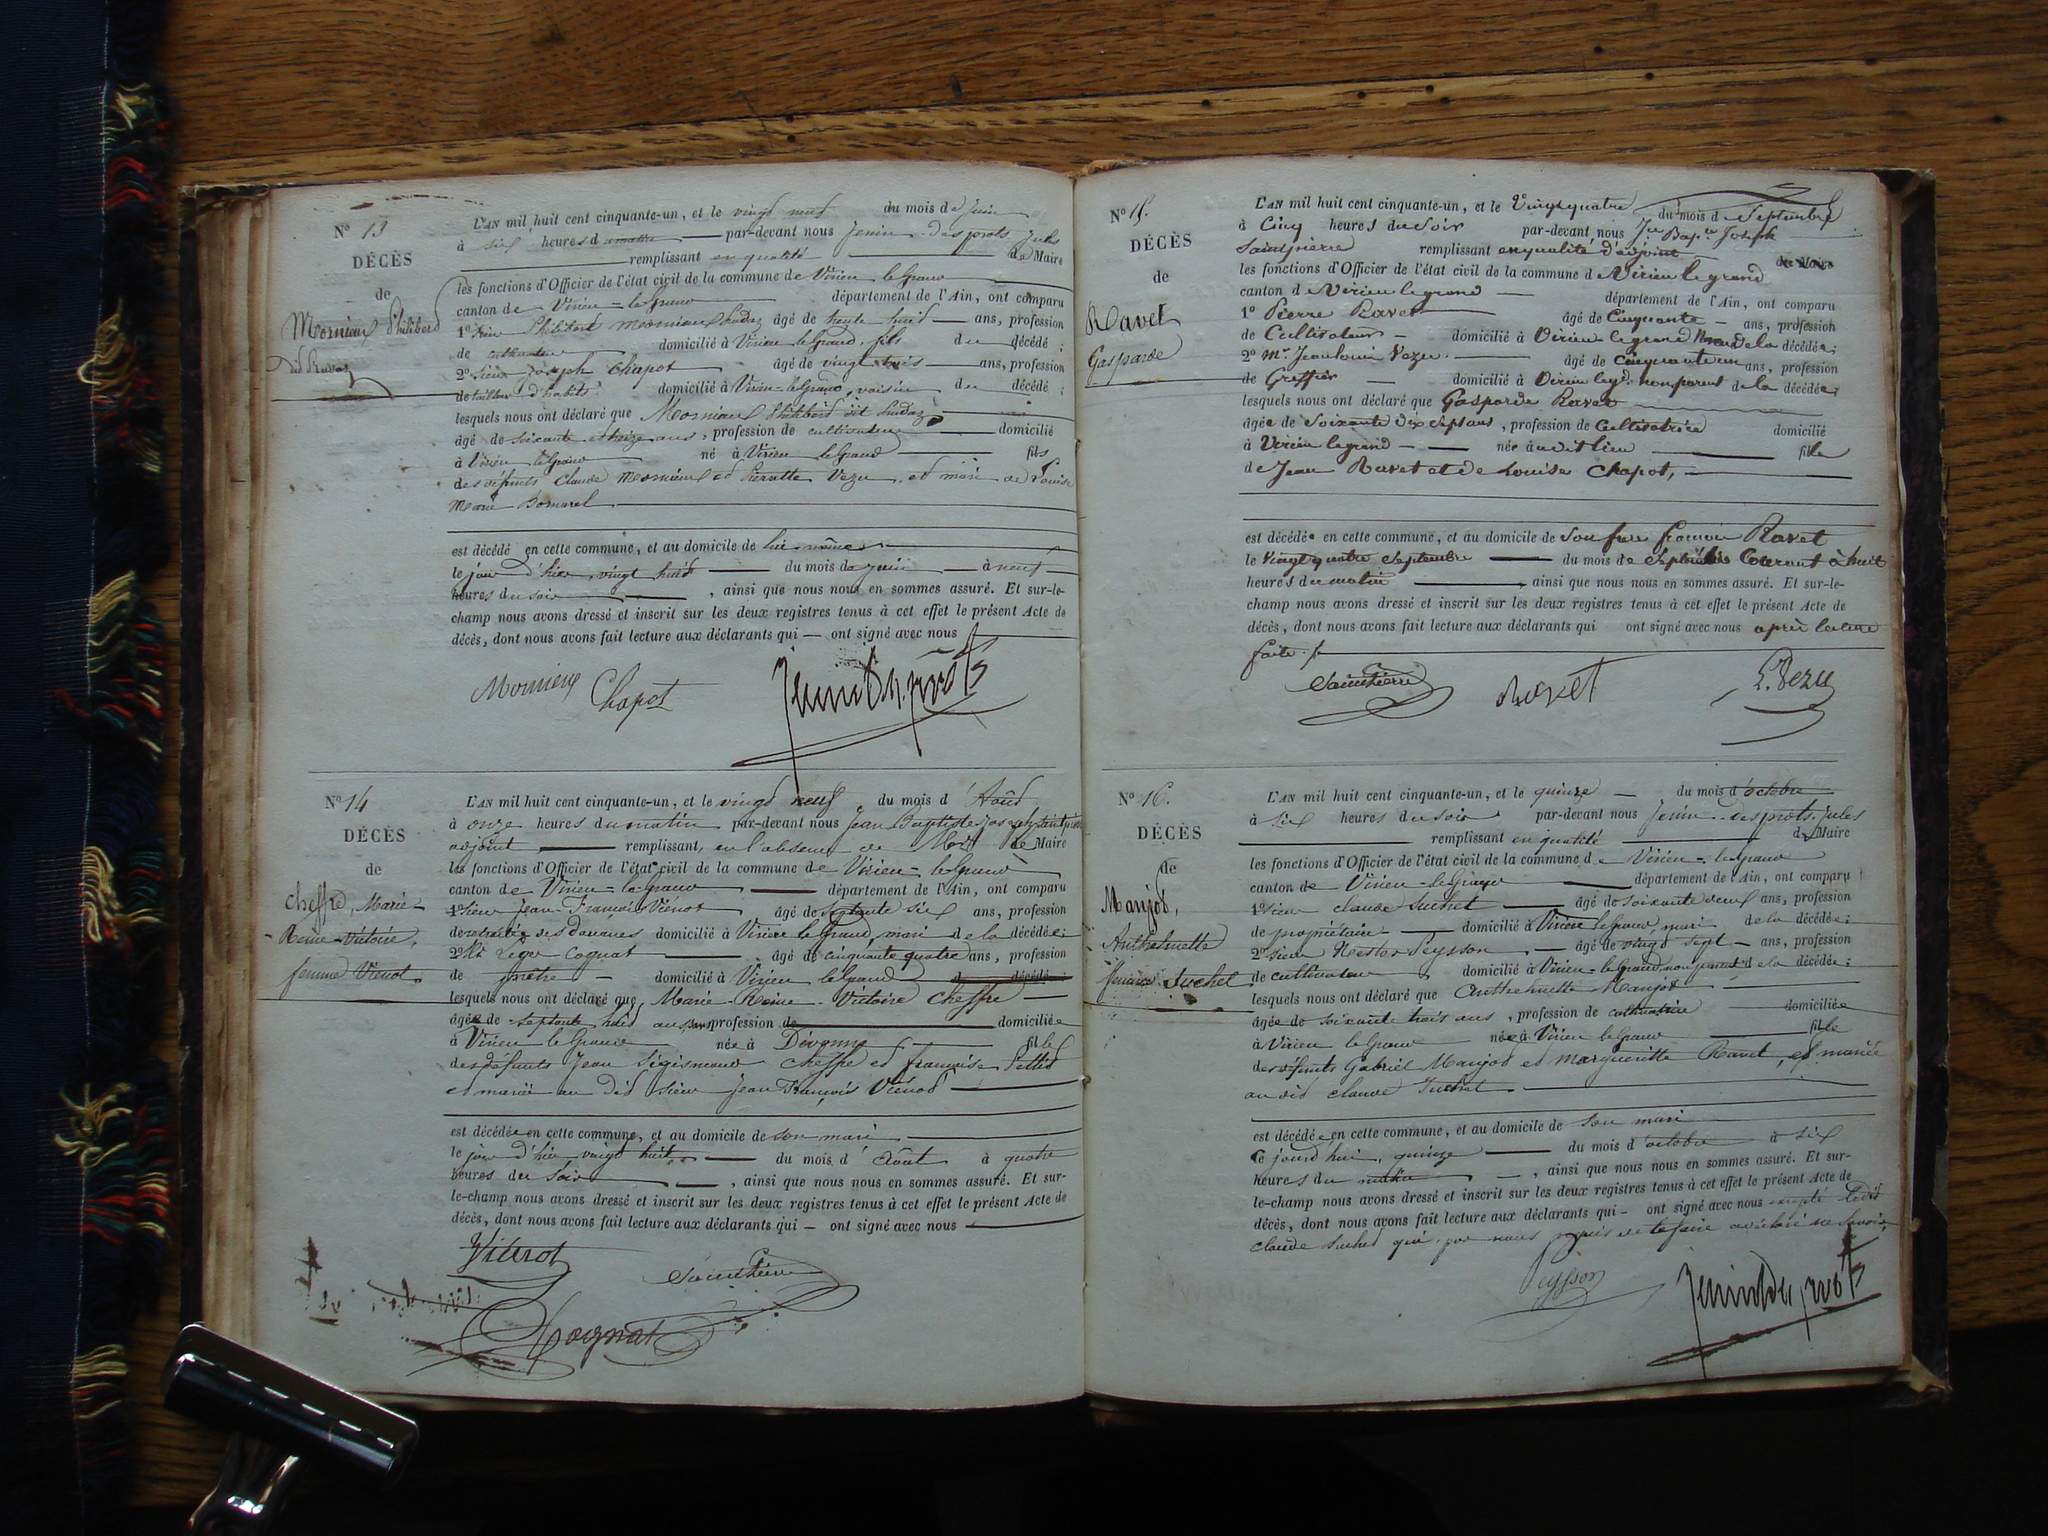 N° 13
DÉCÈS
de
Mornieux Philiberd
L'AN mil huit cent cinquante-un, et le vingt neuf du mois de Juin
à six heures d par-devant nous Jenin Desprots Jules
remplissant en qualité de Maire
les fonctions d'Officier de l'état civil de la commune de Virieu le Grand
canton de Virieu-le-Grand département de l'Ain, ont comparu
1° Sieur Philibert Mornieux âgé de trente huit ans, profession
de cultivateur domicilié à Virieu leGrand, fils du décédé ;
2° Sieur Joseph Chapot âgé de vingt trois ans, profession
de tailleur d'habits domicilié à Virieu-leGrand, voisin du décédé ;
lesquels nous ont déclaré que Mornieux Philiberd dit
âgé de soixante seize ans, profession de cultivateur domicilié
à Virieu leGrand né à Virieu leGrand fils
des défunts Claude Mornieux et Pierrette Vezu, et mari de Louise
Marie Bomarel
est décédé en cette commune, et au domicile de lui-même
le jour d'hier vingt huit du mois de Juin à neuf
heures du soir , ainsi que nous nous en sommes assuré. Et sur-le-
champ nous avons dressé et inscrit sur les deux registres tenus à cet effet le présent Acte de
décès, dont nous avons fait lecture aux déclarants qui ont signé avec nous
Mornieux Chapot Jenin Desprots
N° 14
DÉCÈS
de
Cheffre, Marie-
Reine-Victoire,
femme Viénot.
L'AN mil huit cent cinquante-un, et le vingt neuf du mois d'Août
à onze heures du matin par-devant nous Jean Baptiste Joseph Saintpierre
adjoint remplissant, en l'absence de Mr le Maire
les fonctions d'Officier de l'état civil de la commune de Virieu-leGrand
canton de Virieu-le-Grand département de l'Ain, ont comparu
1° Sieur Jean François Viénot âgé de septante six ans, profession
de retraité des douanes domicilié à Virieu le Grand, mari de la décédée ;
2° Cognat âgé de cinquante quatre ans, profession
de prêtre domicilié à Virieu le Grand d décédé ;
lesquels nous ont déclaré que Marie-Reine-Victoire Cheffre
âgée de septante huit ans profession de domiciliée
à Virieu le Grand née à Divonne fille
des défunts Jean Sigismond Cheffre et Françoise Pettit
et mariée au dit sieur Jean François Viénot
est décédée en cette commune, et au domicile de son mari
le jour d'hier vingt huit du mois d'Août à quatre
heures du soir , ainsi que nous nous en sommes assuré. Et sur-
le-champ nous avons dressé et inscrit sur les deux registres tenus à cet effet le présent Acte de
décès, dont nous avons fait lecture aux déclarants qui ont signé avec nous
Viénot Saintpierre
Cognat
N° 15.
DÉCÈS
de
Ravet
Gasparde
L'AN mil huit cent cinquante-un, et le Vingt quatre du mois d Septembre
à Cinq heures du Soir par-devant nous Jn Bapte Joseph
Saintpierre remplissant en qualité d'adjoint
les fonctions d'Officier de l'état civil de la commune d Virieu le grand
canton d Virieu le grand département de l'Ain, ont comparu
1° Pierre Ravet âgé de Cinquante ans, profession
de Cultivateur domicilié à Virieu le grand Neveu de la décédée ;
2° Mr Jean louis Vezu âgé de cinquante un ans, profession
de Greffier domicilié à Virieu legd. non parent de la décédée ;
lesquels nous ont déclaré que Gasparde Ravet
âgée de Soixante dix Sept ans, profession de Cultivatrice domicilié
à Virieu legrand née au dit lieu fille
de Jean Ravet et de Louise Chapot,
est décédée en cette commune, et au domicile de son frère françois Ravet
le Vingt quatre Septembre du mois de Septembre Courant à huit
heures du matin , ainsi que nous nous en sommes assuré. Et sur-le-
champ nous avons dressé et inscrit sur les deux registres tenus à cet effet le présent Acte de
décès, dont nous avons fait lecture aux déclarants qui ont signé avec nous après lecture
faite.
Saintpierre Ravet L. Vezu
N° 16.
DÉCÈS
de
Manjod,
Anthelmette
femme Suchet
L'AN mil huit cent cinquante-un, et le quinze du mois d'octobre
à six heures du soir par-devant nous Jenin-desprots Jules
remplissant en qualité de Maire
les fonctions d'Officier de l'état civil de la commune de Virieu-le-Grand
canton de Virieu-leGrand département de l'Ain, ont comparu
1° sieur Claude Suchet âgé de soixante neuf ans, profession
de propriétaire domicilié à Virieu leGrand, mari de la décédée ;
2° sieur Nestor Peysson âgé de vingt sept ans, profession
de cultivateur domicilié à Virieu-leGrand, non parent de la décédée ;
lesquels nous ont déclaré que Anthelmette Manjod
âgée de soixante trois ans, profession de cultivatrice domiciliée
à Virieu le Grand née à Virieu leGrand fille
des défunts Gabriel Manjod et Marguerite Ravet, et mariée
au dit Claude Suchet
est décédée en cette commune, et au domicile de son mari
ce jourd'hui, quinze du mois d'octobre à six
heures du matin , ainsi que nous nous en sommes assuré. Et sur-
le-champ nous avons dressé et inscrit sur les deux registres tenus à cet effet le présent Acte de
décès, dont nous avons fait lecture aux déclarants qui ont signé avec nous excepté ledit
Claude Suchet qui, par nous requis de le faire a déclaré ne savoir,
Peysson Jenindesprots